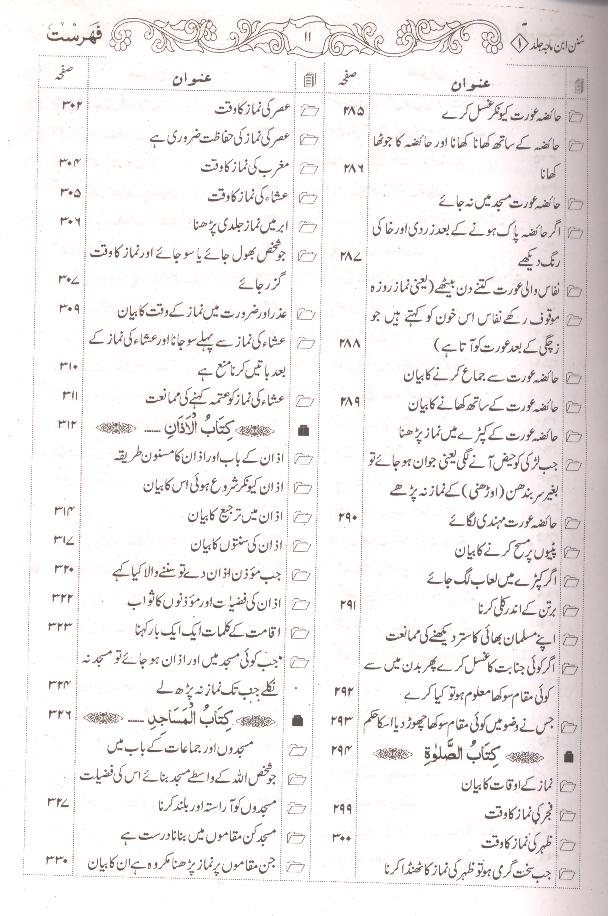 سنن ابن ماجہ جلد ۱
۱۱
فہرست
عنوان
صفحہ
حائضہ عورت کیونکر غسل کرے ۲۸۵
حائضہ کے ساتھ کھانا کھانا اور حائضہ کا جوٹھا
کھانا ۲۸۶
حائضہ عورت مسجد میں نہ جائے
اگر حائضہ پاک ہونے کے بعد زردی اور خاکی
رنگ دیکھے ۲۸۷
نفاس والی عورت کتنے دن بیٹھے (یعنی نماز روزہ
موقوف رکھے نفاس اس خون کو کہتے ہیں جو
زچگی کے بعد عورت کو آتا ہے) ۲۸۸
حائضہ عورت سے جماع کرنے کا بیان
حائضہ عورت کے ساتھ کھانے کا بیان ۲۸۹
حائضہ عورت کے کپڑے میں نماز پڑھنا
جب لڑکی کو حیض آنے لگی یعنی جوان ہو جائے تو
بغیر سربندھن (اوڑھنی) کے نماز نہ پڑھے
حائضہ عورت مہندی لگائے ۲۹۰
پٹیوں پر مسح کرنے کا بیان
اگر کپڑے میں لعاب لگ جائے
برتن کے اندر کلی کرنا ۲۹۱
اپنے مسلمان بھائی کا ستر دیکھنے کی ممانعت
اگر کوئی جنابت کا غسل کرے پھر بدن میں سے
کوئی مقام سوکھا معلوم ہو تو کیا کرے ۲۹۲
جس نے وضو میں کوئی مقام سوکھا چھوڑ دیا اسکا حکم ۲۹۳
كِتَابُ الصَّلٰوةِ ۲۹۴
نماز کے اوقات کا بیان
فجر کی نماز کا وقت ۲۹۹
ظہر کی نماز کا وقت ۳۰۰
جب سخت گرمی ہو تو ظہر کی نماز کا ٹھنڈا کرنا
عنوان
صفحہ
عصر کی نماز کا وقت ۳۰۲
عصر کی نماز کی حفاظت ضروری ہے
مغرب کی نماز کا وقت ۳۰۴
عشاء کی نماز کا وقت ۳۰۵
ابر میں نماز جلدی پڑھنا ۳۰۶
جو شخص بھول جائے یا سو جائے اور نماز کا وقت
گزر جائے ۳۰۷
عذر اور ضرورت میں نماز کے وقت کا بیان ۳۰۹
عشاء کی نماز سے پہلے سو جانا اور عشاء کی نماز کے
بعد باتیں کرنا منع ہے ۳۱۰
عشاء کی نماز کو عتمہ کہنے کی ممانعت ۳۱۱
كِتَابُ الْاَذَانِ ..... ۳۱۲
اذان کے باب اور اذان کا مسنون طریقہ
اذان کیونکر شروع ہوئی اس کا بیان
اذان میں ترجیع کا بیان ۳۱۴
اذان کی سنتوں کا بیان ۳۱۷
جب مؤذن اذان دے تو سننے والا کیا کہے ۳۲۰
اذان کی فضیلت اور مؤذنوں کا ثواب ۳۲۲
اقامت کے کلمات ایک ایک بار کہنا ۳۲۳
جب کوئی مسجد میں اور اذان ہو جائے تو مسجد نہ
نکلے جب تک نماز نہ پڑھ لے ۳۲۴
كِتَابُ الْمَسَاجِدِ ..... ۳۲۶
مسجدوں اور جماعات کے باب میں
جو شخص اللہ کے واسطے مسجد بنائے اس کی فضیلت
مسجدوں کو آراستہ اور بلند کرنا ۳۲۷
مسجد کن مقاموں میں بنانا درست ہے
جن مقاموں پر نماز پڑھنا مکروہ ہے ان کا بیان ۳۳۰